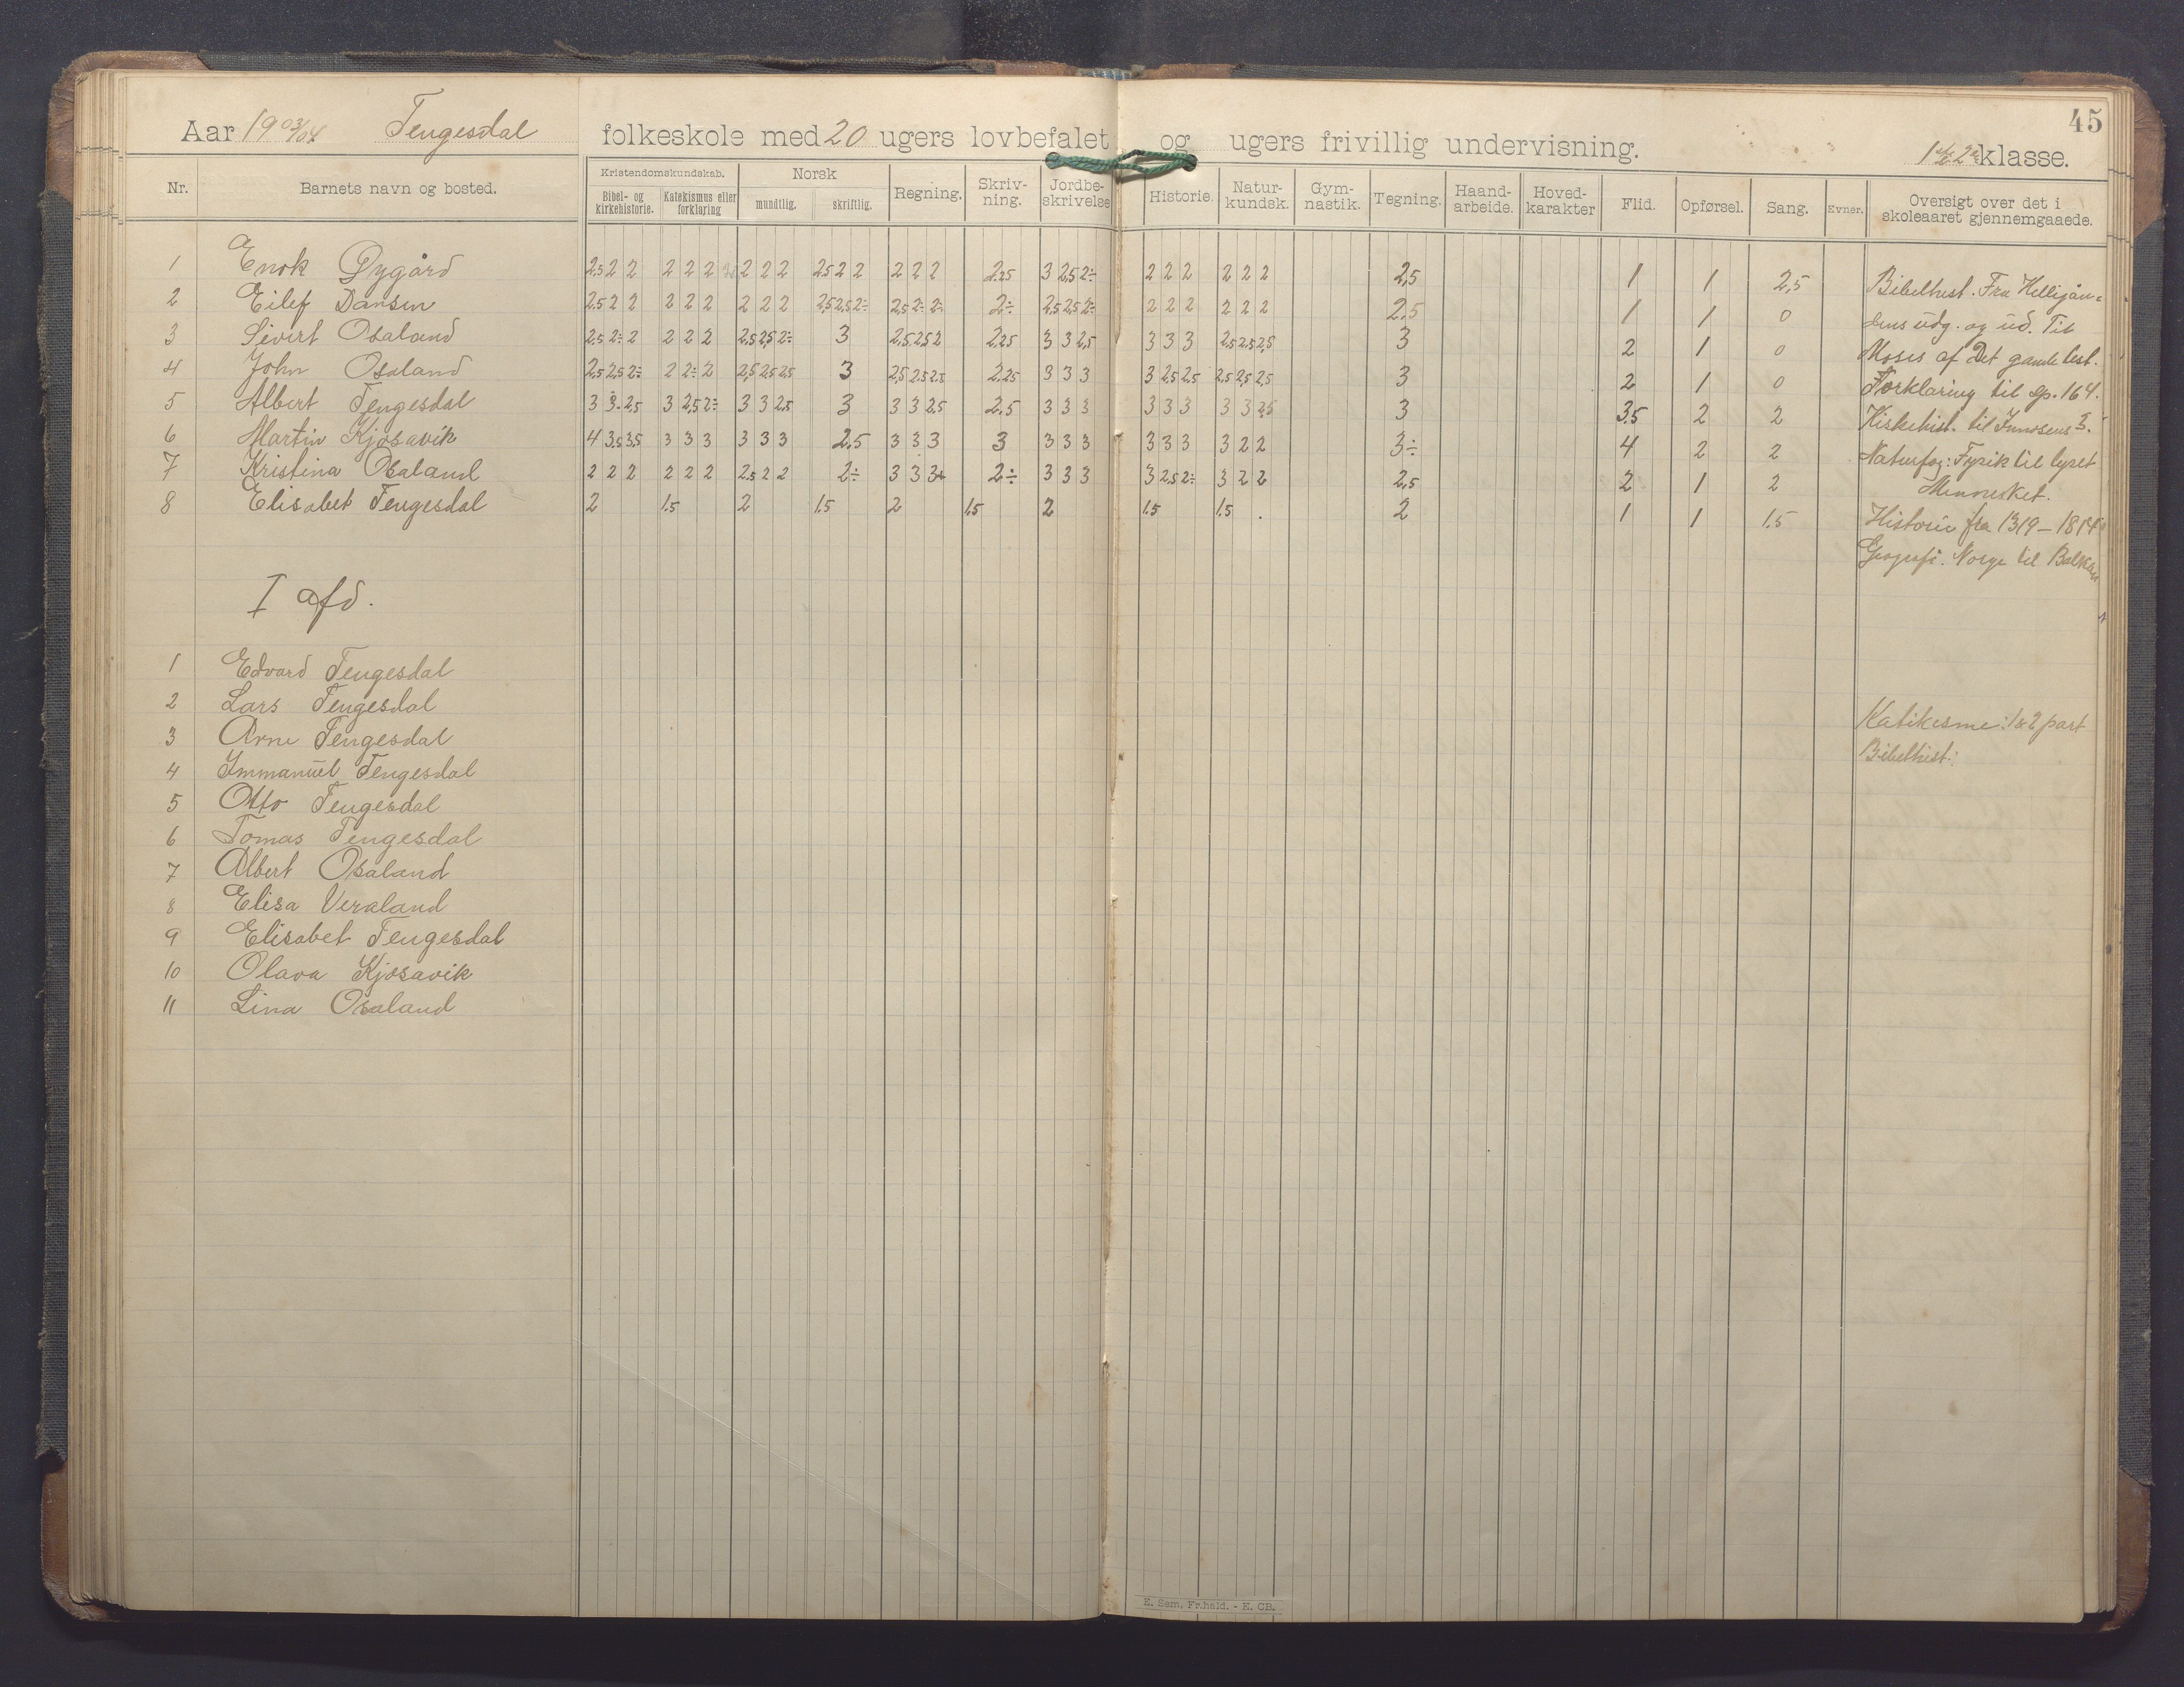 45
Aar 1903/04 Tengesdal folkeskole med 20 ugers lovbefalet og ugers frivillig undervisning. klasse.
Nr. Barnets navn og bosted. Kristendomskundskab. Norsk Regning. Skriv-ning. Jordbe-skrivelse Historie. Natur-kundsk. Gym-nastik. Tegning. Haand-arbeide. Hoved-karakter Flid. Opførsel. Sang. Evner. Oversigt over det i skoleaaret gjennemgaaede.
Bibel- og kirkehistorie. Katekismus eller forklaring mundtlig. skriftlig.
1 Enok Øygård 2.5 2 2 2 2 2 2 2 2 2.5 2 2 2 2 2 2.25 3 2.5 2÷ 2 2 2 2 2 2 2,5 1 1 2,5 Bibelhist. Fra Helligån-
2 Eilef Dansen 2.5 2 2 2 2 2 2 2 2 2,5 2,5 2÷ 2,5 2÷ 2÷ 2÷ 2.5 2.5 2÷ 2 2 2 2 2 2 2.5 1 1 0 dens udg. og ud. Til
3 Sivert Osaland 2.5 2÷ 2 2 2 2 2.5 2,5 2÷ 3 2.5 2.5 2 2.25 3 3 2,5 3 3 3 2.5 2.5 2,5 3 2 1 0 Moses af Det gamle test.
4 John Osaland 2.5 2.5 2÷ 2 2÷ 2 2,5 2.5 2.5 3 2,5 2.5 2.5 2.25 3 3 3 3 2.5 2.5 2.5 2,5 2,5 3 2 1 0 Forklaring til sp. 164.
5 Albert Tengesdal 3 3- 2,5 3 2,5 2÷ 3 3 2.5 3 3 3 2.5 2.5 3 3 3 3 3 3 3 3 2.5 3 3.5 2 2 Kirkehist. til Innosens 3.
6 Martin Kjosavik 4 3.5 3.5 3 3 3 3 3 3 2.5 3 3 3 3 3 3 3 3 3 3 3 2 2 3÷ 4 2 2 Naturfag: Fysik til lyset
7 Kristina Osaland 2 2 2 2 2 2 2.5 2 2 2÷ 3 3 3+ 2÷ 3 3 3 3 2.5 2÷ 3 2 2 2,5 2 1 2 Mennesket.
8 Elisabet Tengesdal 2 1.5 2 1.5 2 1.5 2 1.5 1.5 2 1 1 1.5 Historie fra 1319–1814
Geografi. Norge til Balkan
I afd.
1 Edvard Tengesdal
2 Lars Tengesdal Katikesme: 1 & 2 part
3 Arne Tengesdal Bibelhist:
4 Immanuel Tengesdal
5 Otto Tengesdal
6 Tomas Tengesdal
7 Albert Osaland
8 Elisa Veraland
9 Elisabet Tengesdal
10 Olava Kjosavik
11 Lina Osaland
E. Sem, Fr.hald. - E. CB.